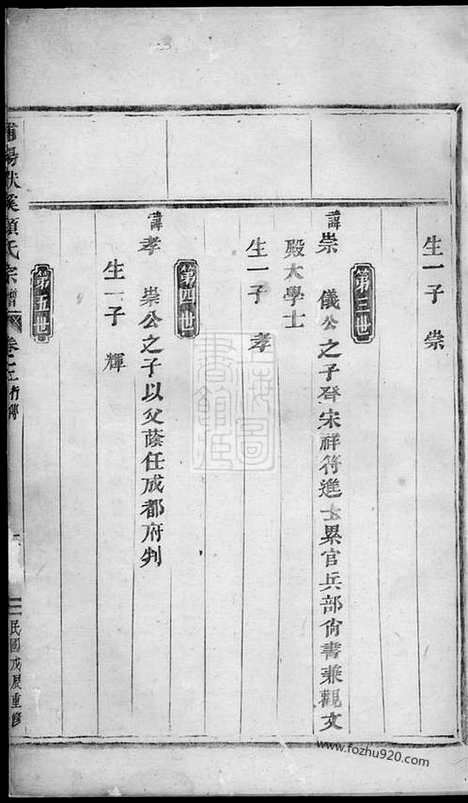 生一子 崇
第三世
諱崇 儀公之子登宋祥符進士累官兵部尚書兼觀文
殿大學士
生一子 孝
第四世
諱孝 崇公之子以父蔭任成都府判
生一子 輝
第五世
項氏宗譜 卷之 行傳
民國戊辰重修
上海圖書館藏
www.fozhu920.com